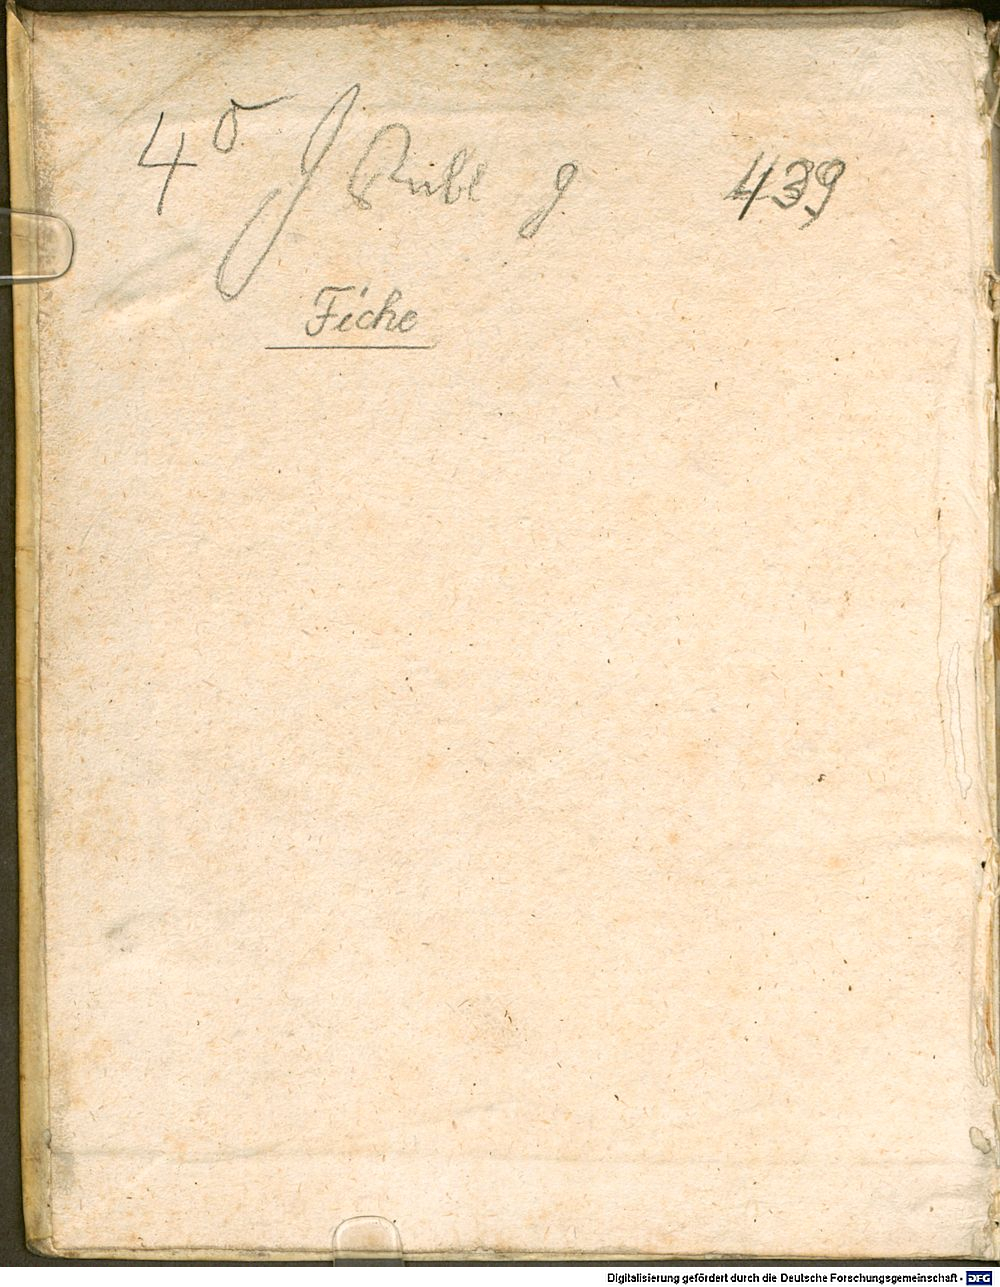 4° J publ g 439
Fiche
Digitalisierung gefördert durch die Deutsche Forschungsgemeinschaft - DFG